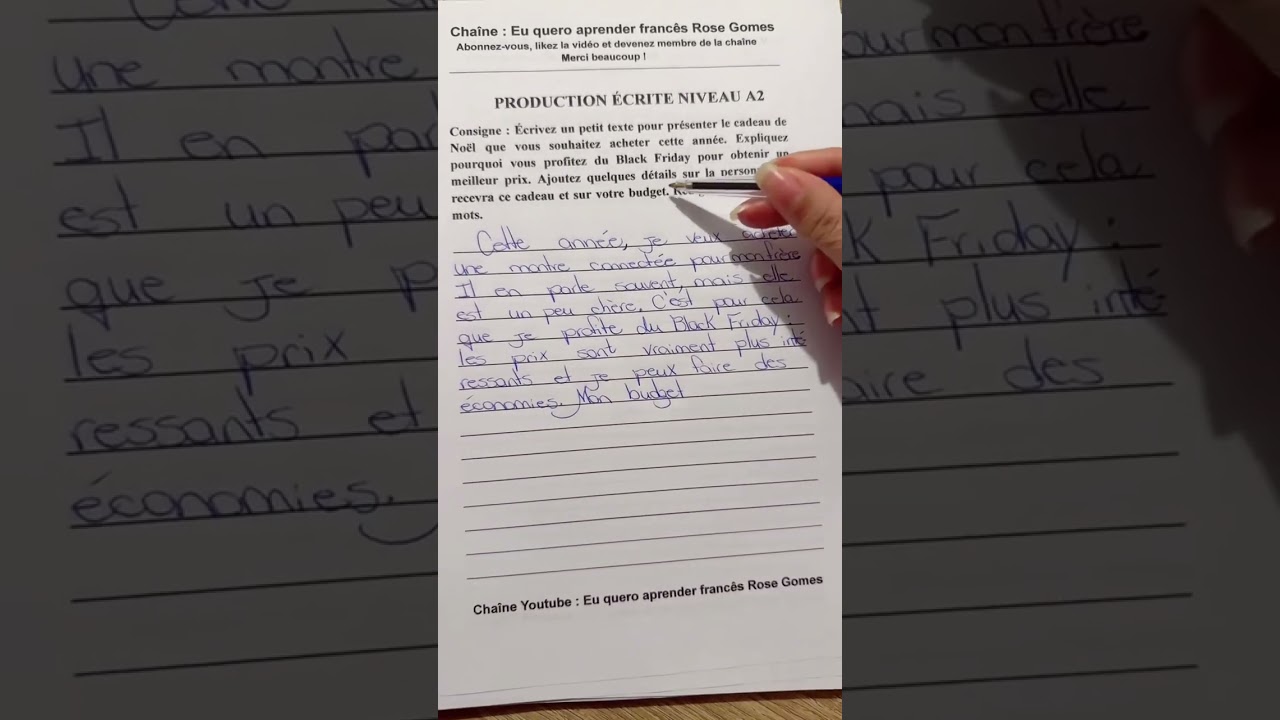 Chaîne : Eu quero aprender francês Rose Gomes
Abonnez-vous, likez la vidéo et devenez membre de la chaîne
Merci beaucoup !
PRODUCTION ÉCRITE NIVEAU A2
Consigne : Écrivez un petit texte pour présenter le cadeau de
Noël que vous souhaitez acheter cette année. Expliquez
pourquoi vous profitez du Black Friday pour obtenir un
meilleur prix. Ajoutez quelques détails sur la
recevra ce cadeau et sur votre budget.
mots.
Cette année, je veux acheter
une montre connectée pour mon frère
Il en parle souvent, mais elle
est un peu chère. C'est pour cela
que je profite du Black Friday :
les prix sont vraiment plus inté
ressants et je peux faire des
économies. Mon budget
Chaîne Youtube : Eu quero aprender francês Rose Gomes